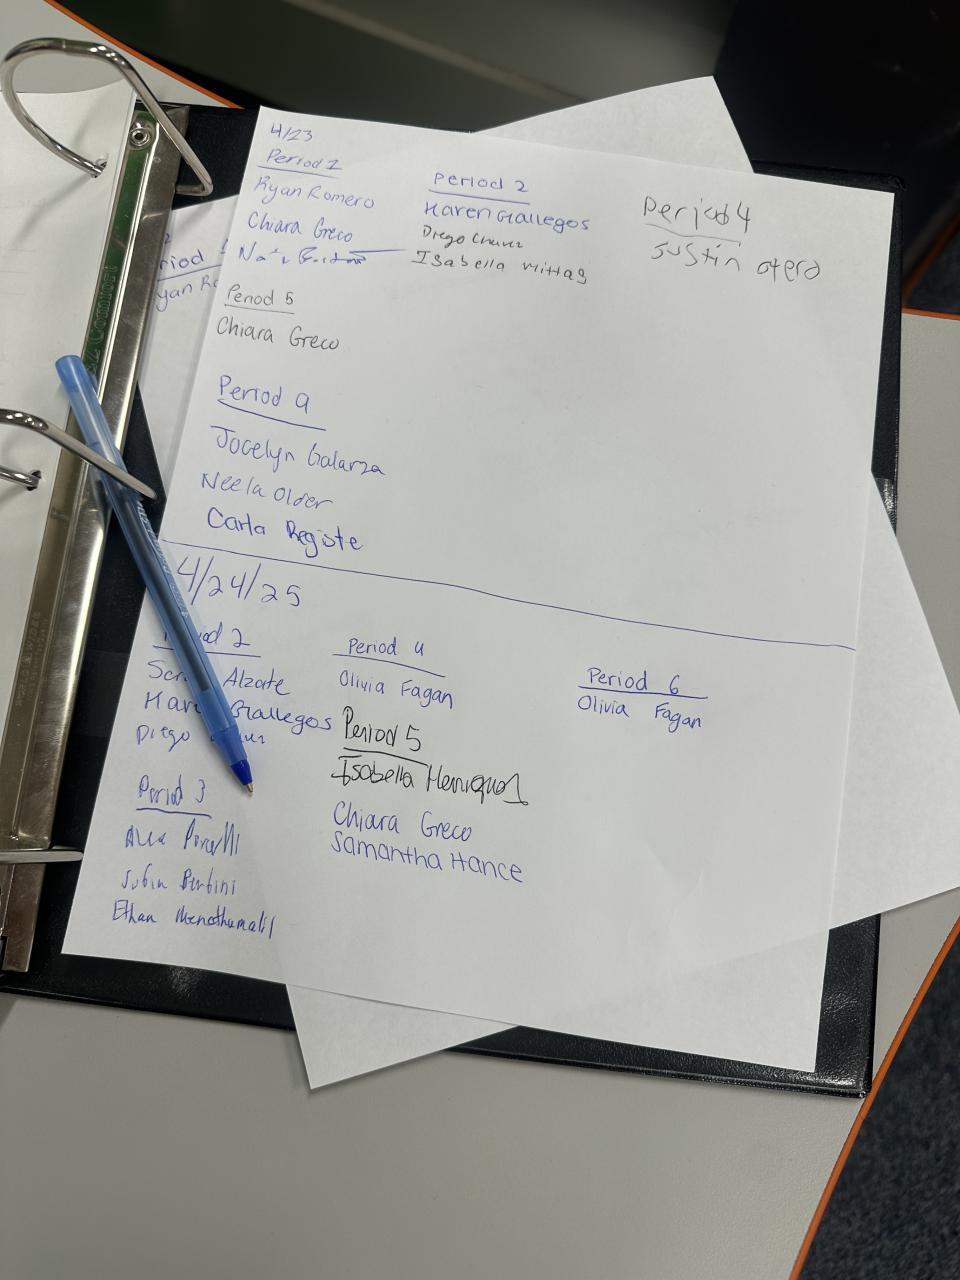 4/23
Period 1
Ryan Romero
Chiara Greco
Period 2
Karen Gallegos
Diego Chavez
Isabella Mittag
Period 4
Justin Otero
Period 5
Chiara Greco
Period 9
Jocelyn Galarza
Neela Older
Carla Registe
4/24/25
2
Alzate
Gallegos
Diego
Period 3
Ethan
Period 4
Olivia Fagan
Period 5
Isabella Henriquez
Chiara Greco
Samantha Hance
Period 6
Olivia Fagan